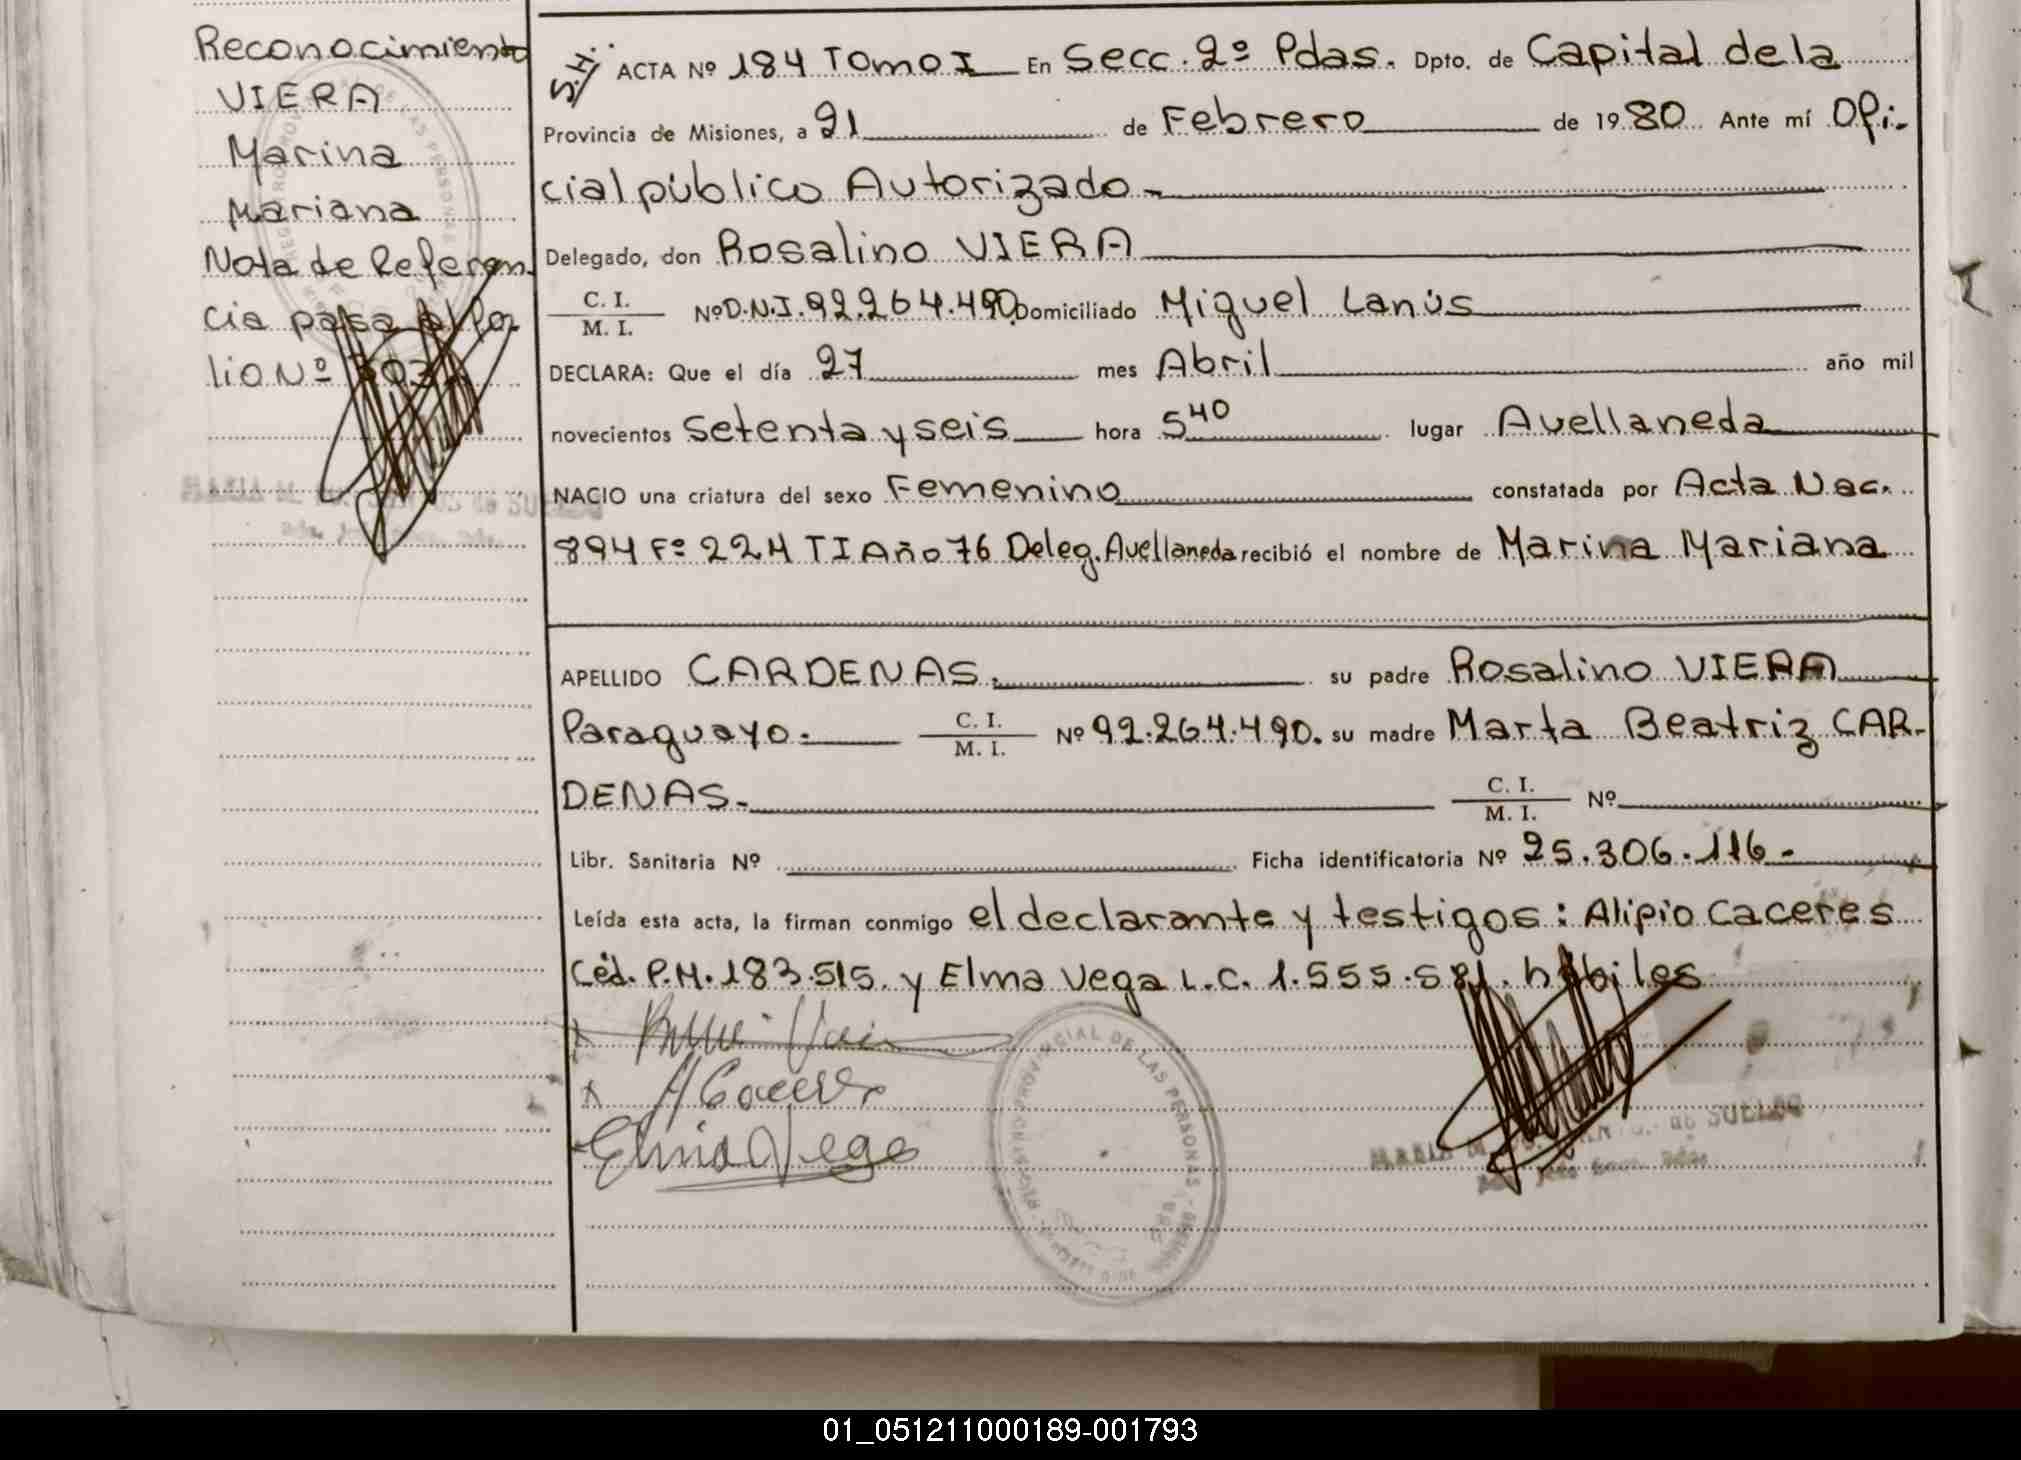 Reconocimiento
VIERA
Marina
Mariana
Nota de Referen
cia pasa al Fo
lio Nº 303
S.H. ACTA Nº 184 TOMO I En Secc. 2º Pdas. Dpto. de Capital de la
Provincia de Misiones, a 21 de Febrero de 1980 Ante mí Ofi-
cial público Autorizado -
Delegado, don Rosalino VIERA
C. I.
M. I. Nº D.N.I. 92.264.490 Domiciliado Miguel Lanús
DECLARA: Que el día 27 mes Abril año mil
novecientos Setenta y seis hora 5 40 lugar Avellaneda
NACIO una criatura del sexo Femenino constatada por Acta Nac.
894 Fº 224 T I Año 76 Deleg. Avellaneda recibió el nombre de Marina Mariana
APELLIDO CARDENAS. su padre Rosalino VIERA
Paraguayo. C. I.
M. I. Nº 92.264.490. su madre Marta Beatriz CAR-
DENAS.- C. I.
M. I. Nº
Libr. Sanitaria Nº Ficha identificatoria Nº 25.306.116.-
Leída esta acta, la firman conmigo el declarante y testigos: Alipio Caceres
Céd. P.M. 183.515. y Elma Vega L.C. 1.555.581. hábiles
A Caceres
Elma Vega
REGISTRO PROVINCIAL DE LAS PERSONAS
01_051211000189-001793